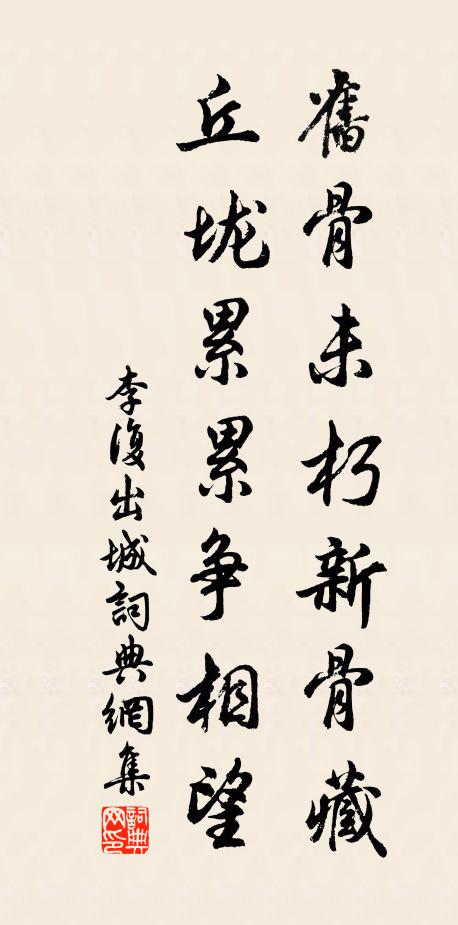 舊骨未朽新骨藏
丘垅累累争相望
李復出城詞典網集
詞典网印